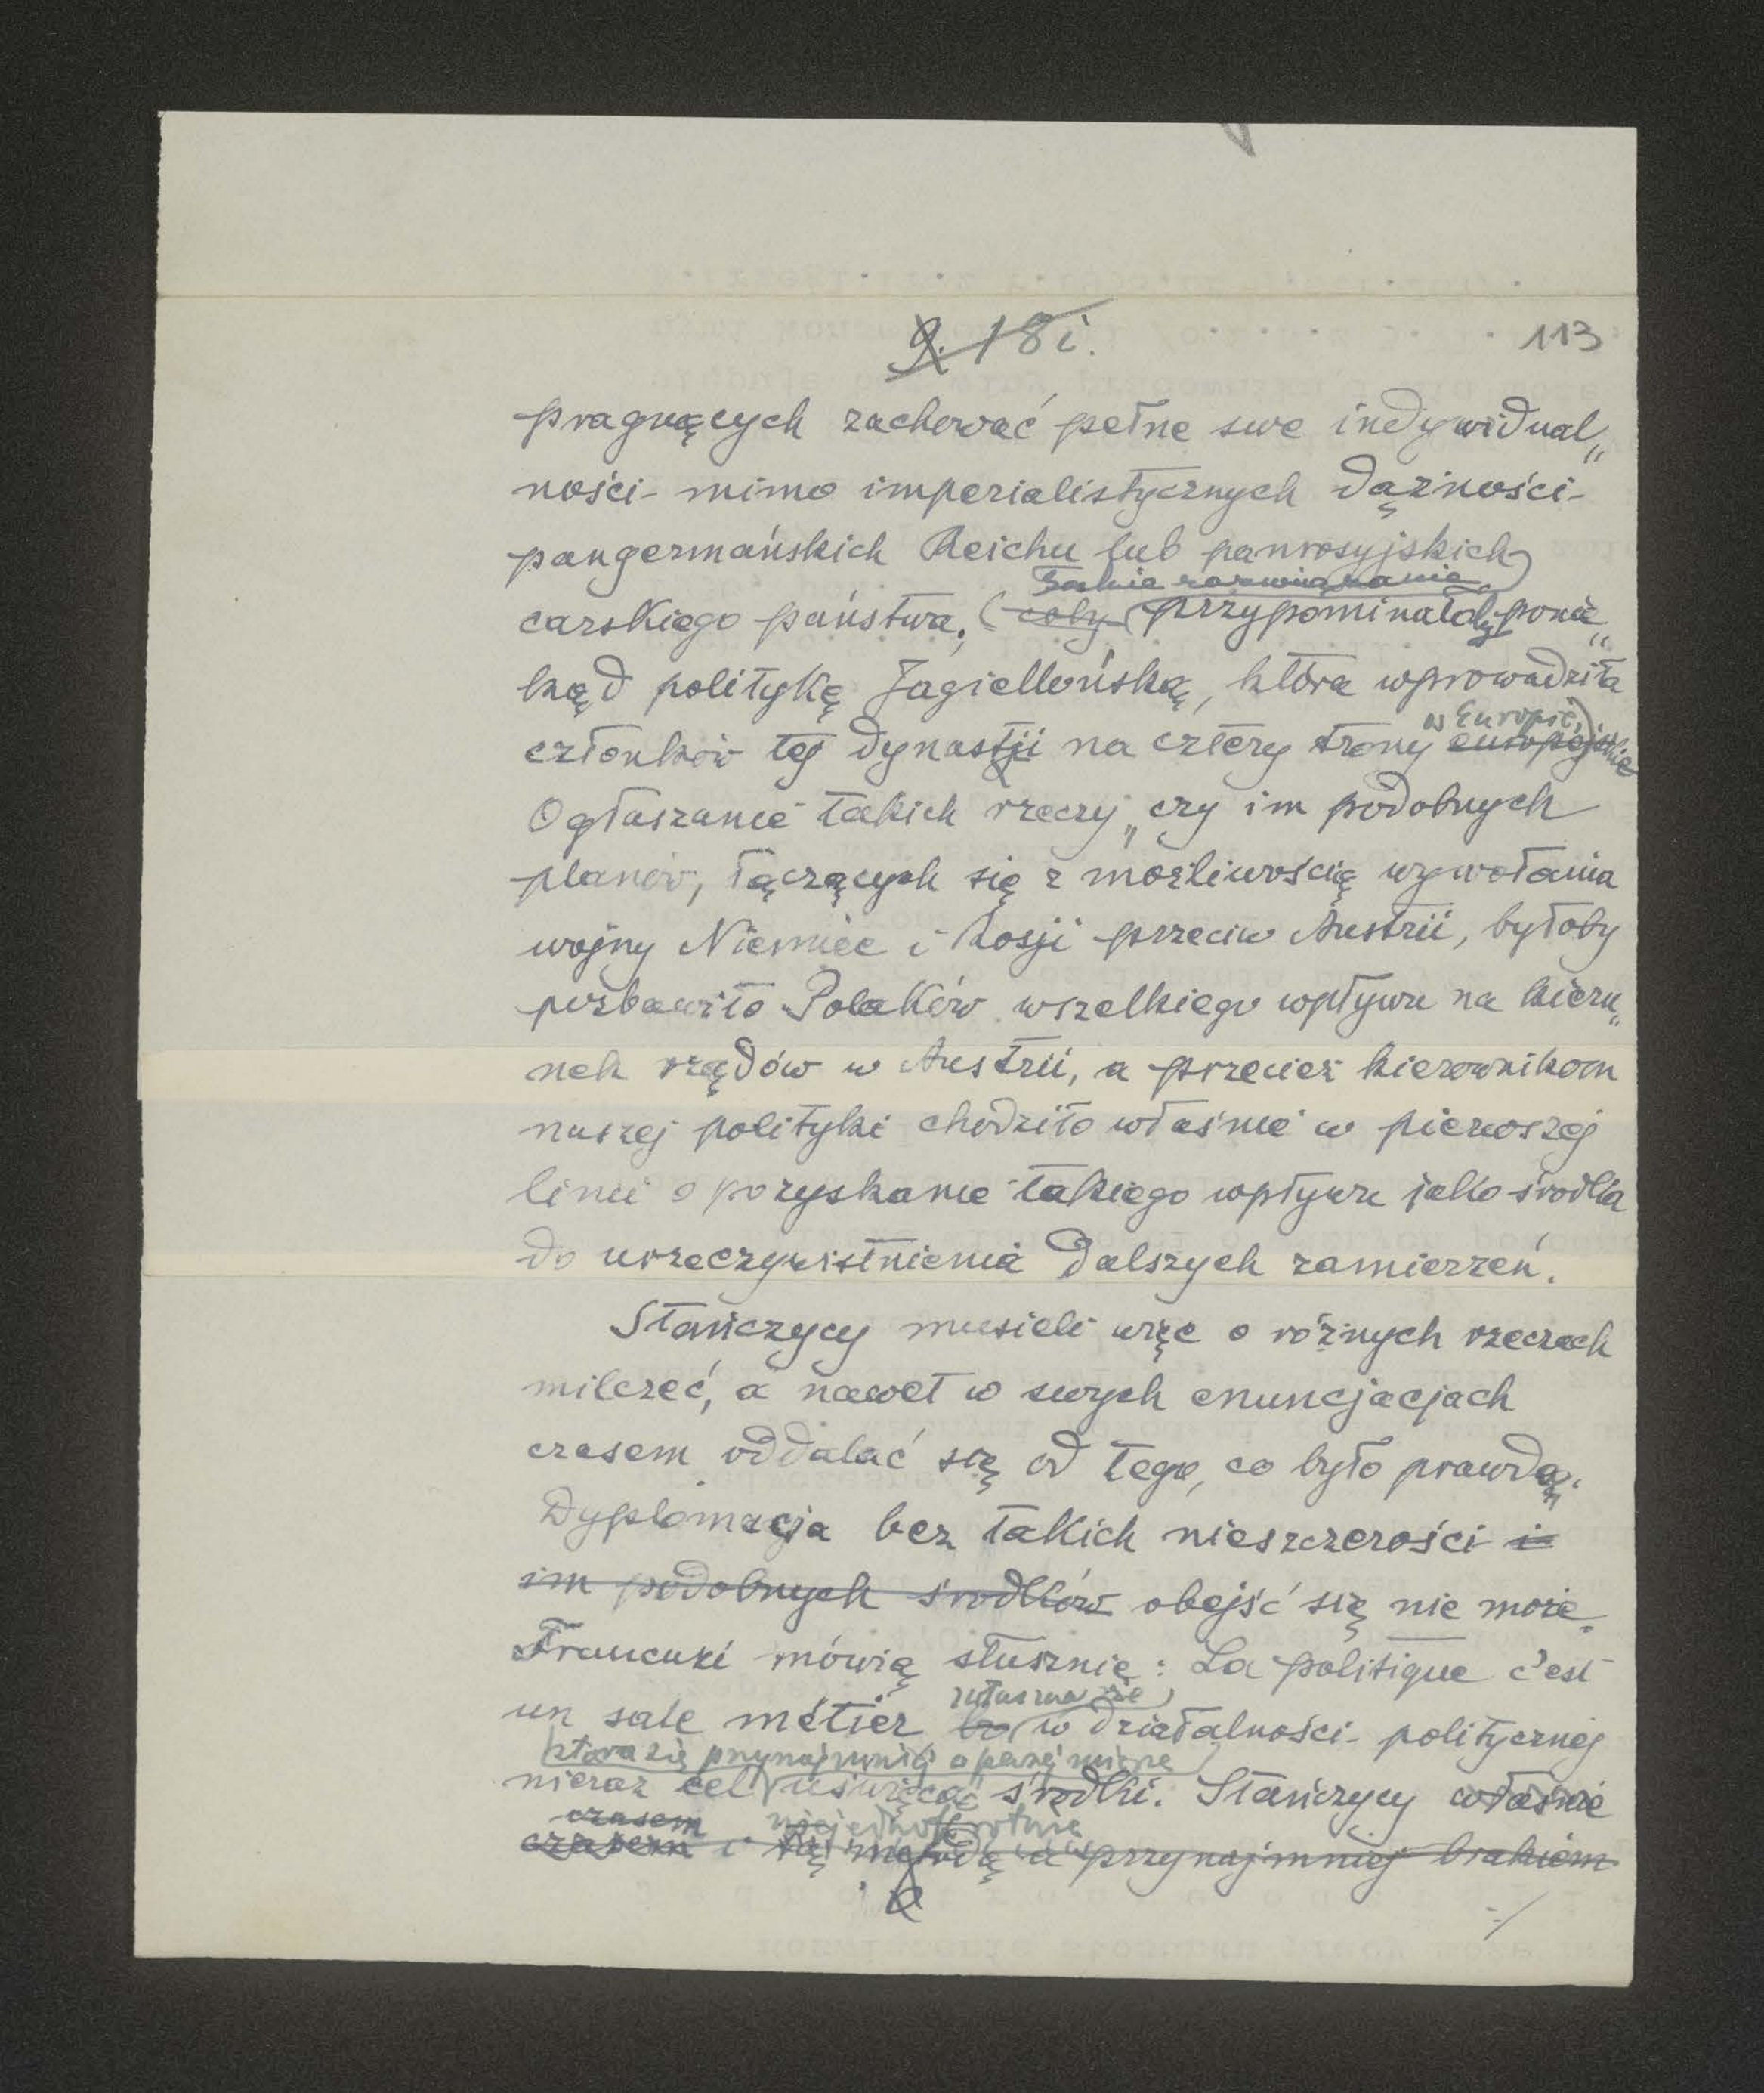 9. 18i.
113
pragnących zachować pełne swe indywidual„
ności mimo imperialistycznych dążności
pangermańskich Reichu lub panrosyjskich
Takie rozwiązanie
carskiego państwa. (coby przypominałoby ponie„
kąd politykę Jagiellońską, która wprowadziła
w Europie)
członków tej dynastji na cztery trony europejskie
Ogłaszanie takich rzeczy„ czy im podobnych
planów, łączących się z możliwością wywołania
wojny Niemiec i Rosji przeciw Austrii, byłoby
pozbawiło Polaków wszelkiego wpływu na kieru„
nek rządów w Austrii, a przecież kierownikom
naszej polityki chodziło właśnie w pierwszej
linii o pozyskanie takiego wpływu jako środka
do urzeczywistnienia dalszych zamierzeń.
Stańczycy musieli więc o różnych rzeczach
milczeć, a nawet w swych enuncjacjach
czasem oddalać się od tego, co było prawdą.
Dyplomacja bez takich nieszczerości i
im podobnych środków obejść się nie może.
Francuzi mówią słusznie: La politique c'est
zwłaszcza że
un sale métier bo w działalności politycznej
która się przynajmniej o
nieraz cel uświęcać środki. Stańczycy właśnie
czasem niejednokrotnie
czasem i tą metodą a przynajmniej brakiem
-/